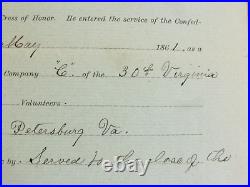 ross of Honor. He entered the service of the Confed-
May 1861, as a
Company "C" of the 30th Virginia
Volunteers.
Petersburg Va.
by Served to the close of the